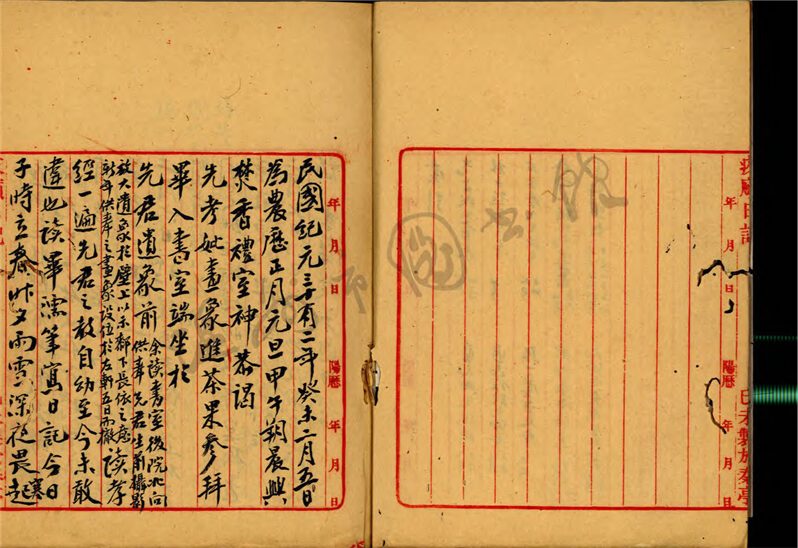 年 月 日 陽曆 年 月 日
己未製於秦亭
民國紀元三十有二年癸未二月五日
為農歷正月元旦甲午朔晨興
焚香禮室神恭謁
先考妣畫象進茶果參拜
畢入書室端坐於
先君遺象前
余讀書室後院北向
供奉先君生前攝影
放大遺象於壁上以示都下長依之意
新年供奉之畫象設位於左朝五日而撤
讀孝
經一遍先君之教自幼至今未敢
違也讀畢濡筆寫日記今日
子時立春昨夕雨雪深夜畏寒
起
年 月 日 陽曆 年 月 日